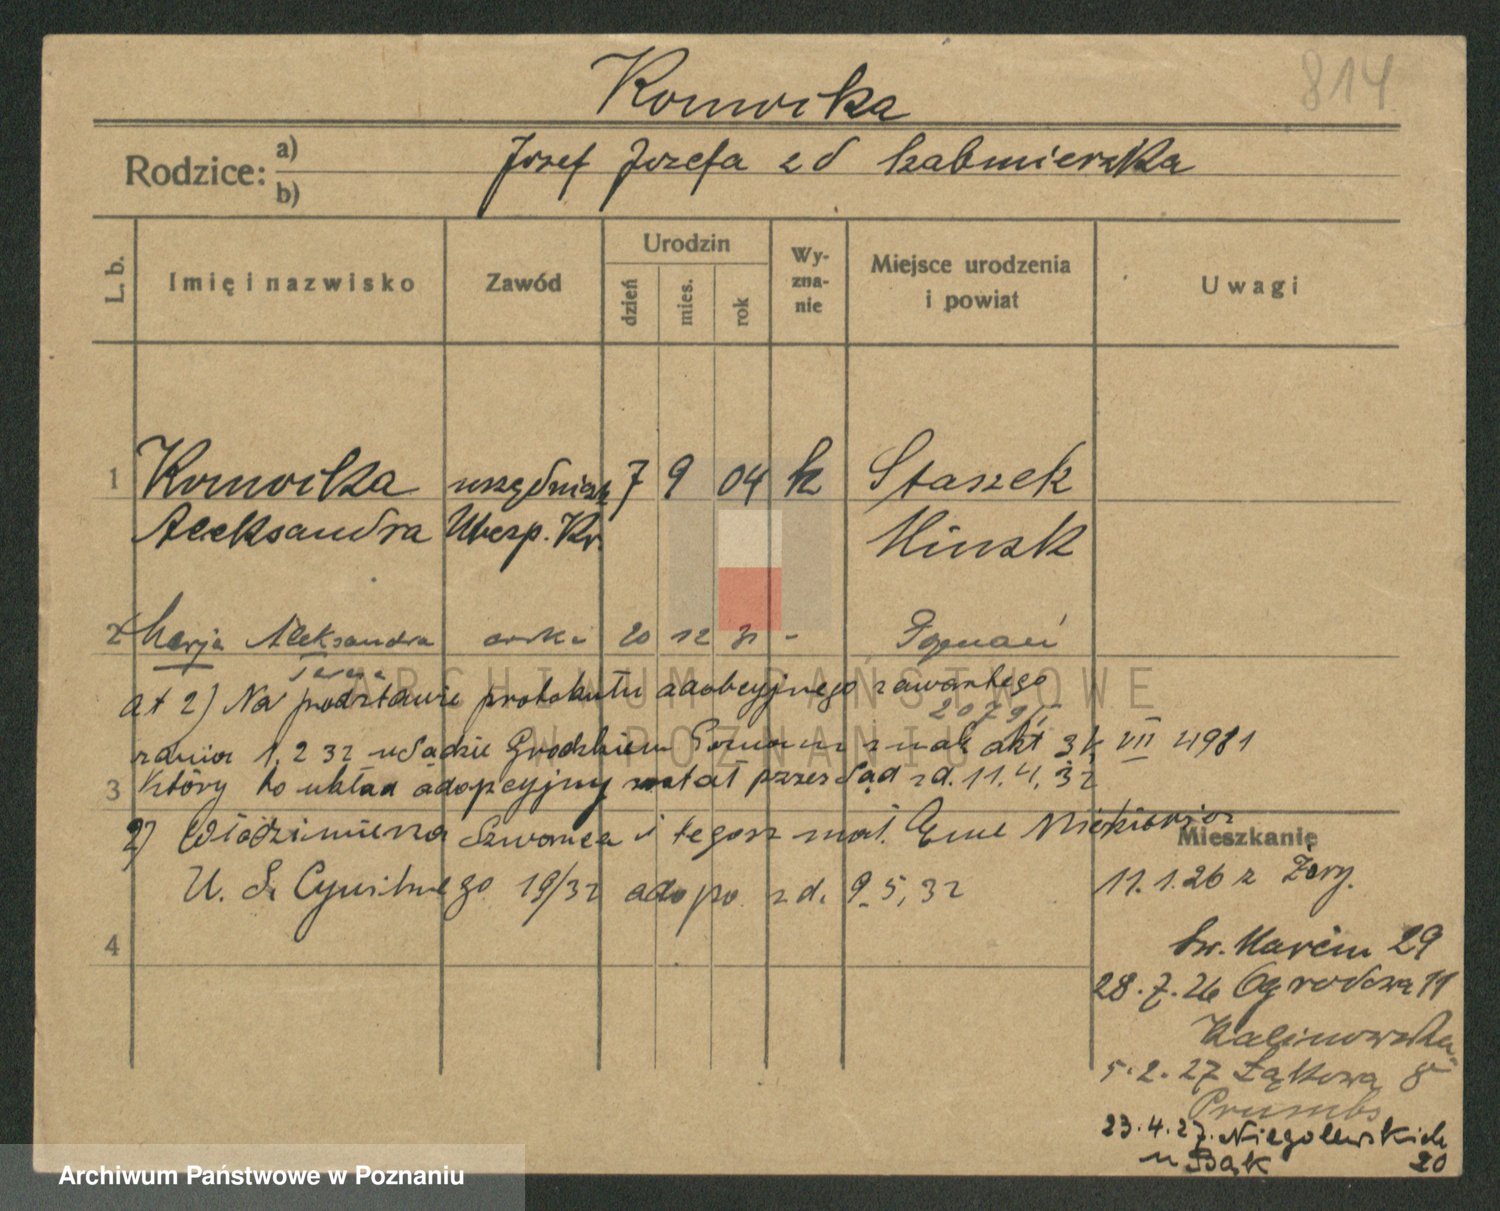 814
Konwika
Rodzice: a)
b)
Józef Józefa z d
L. b.
Imię i nazwisko
Zawód
Urodzin
dzień
mies.
rok
Wy-
zna-
nie
Miejsce urodzenia
i powiat
Uwagi
1 Konwika 7 9 04 k Staszek
Aleksandra Ubezp. Kr. Minsk
2 Marja Aleksandra córka 20 12 31 - Poznań
at 2) Na podstawie protokułu adopcyjnego zawartego
1. 2 32 w Sądzie Grodzkiem znak akt 3 k VII 4981
3 Który to układ adopcyjny został przez Sąd z d. 11. 4. 32
2) Włodzimierza i tegoż mał.
U. S. Cywilnego 19/32 z d. 9. 5. 32
4
Mieszkanie
11.1.26 z Żary.
Św. Marcin 29
28.7.26 Ogrodowa 11
Kalinowska
5.2.27 Łąkowa 8
Prumbs
23.4.27. Niegolewskich
u Bąk 20
ARCHIWUM PAŃSTWOWE
W POZNANIU
Archiwum Państwowe w Poznaniu